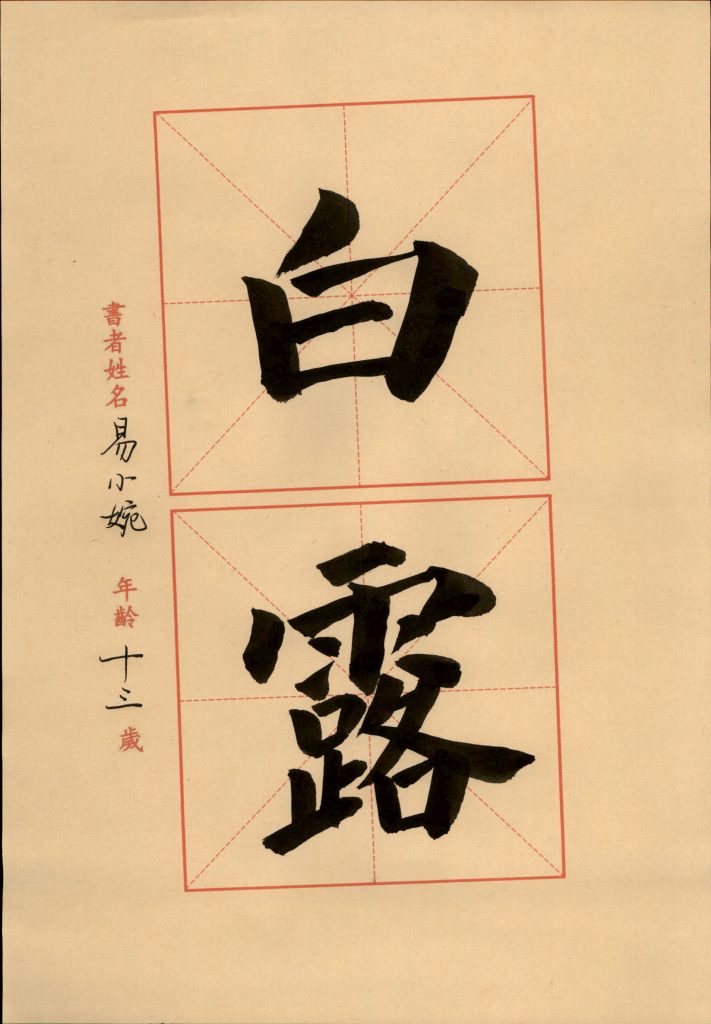 白露
書者姓名 易小婉 年齡 十三 歲